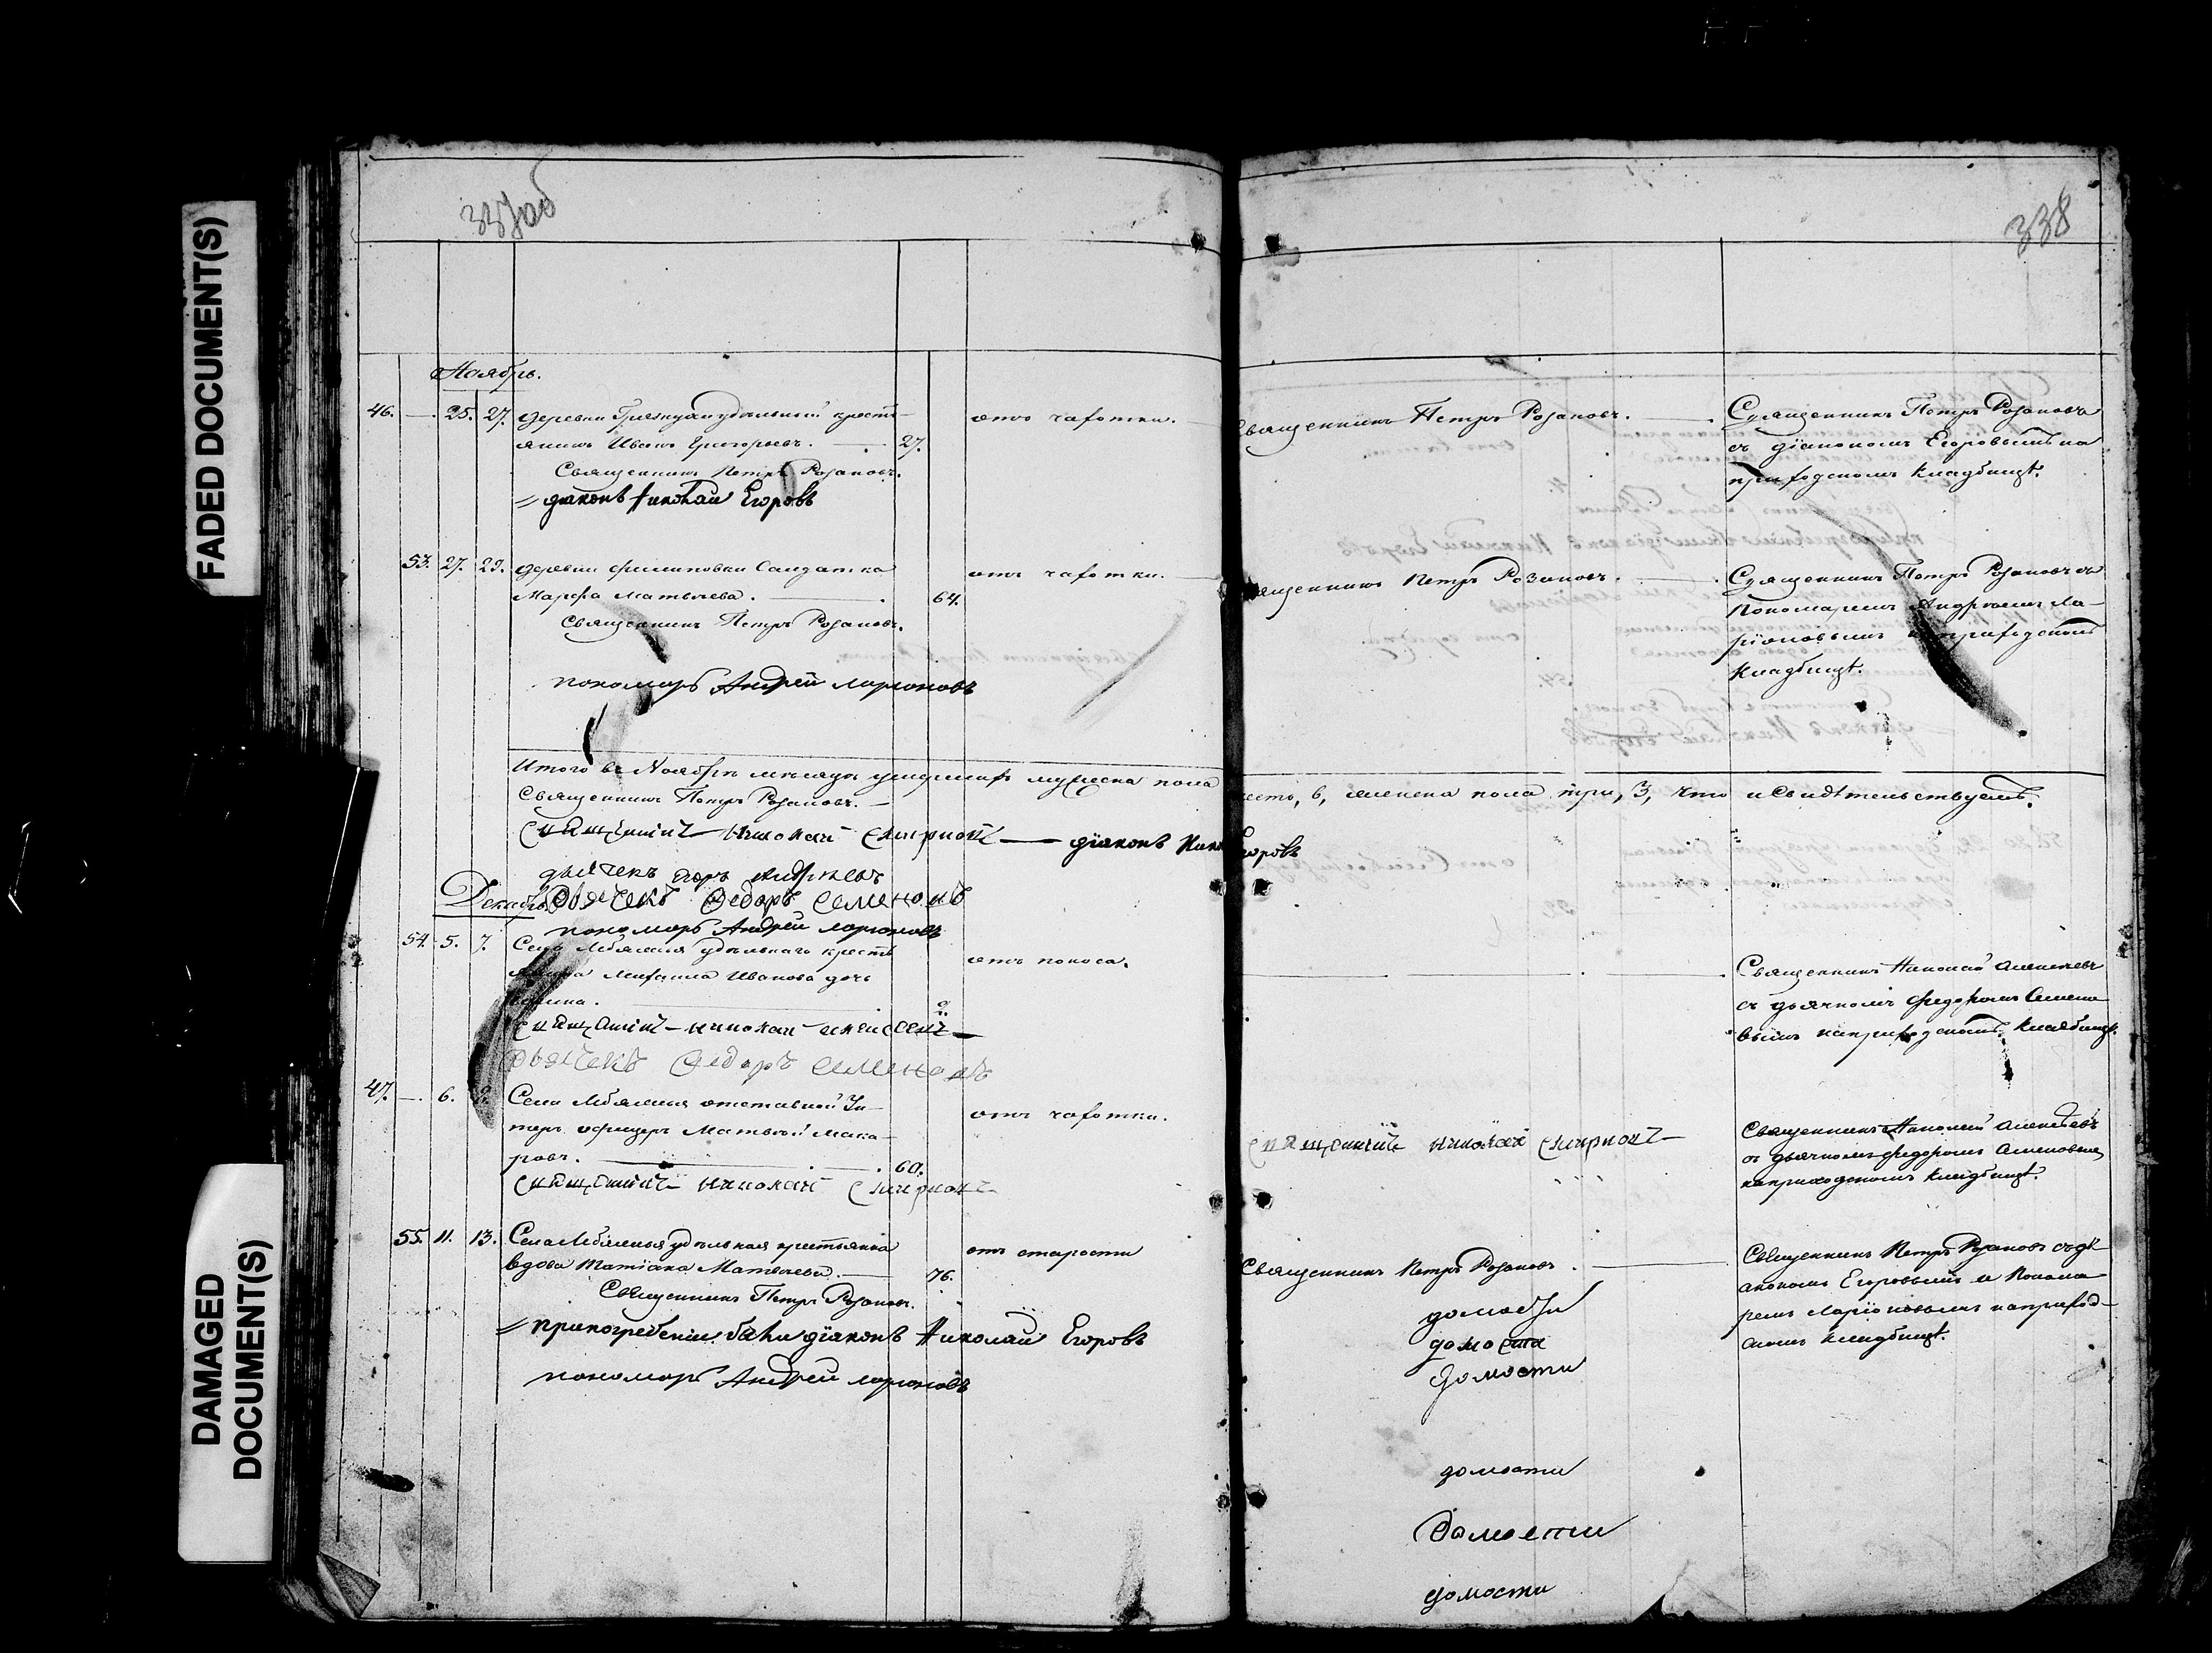 FADED DOCUMENT(S)
DAMAGED
DOCUMENT(S)
337об
338
Ноябрь.
46. — 25. 27. деревни удѣльный крестъ-
янинъ Иванъ Григорьевъ. — 27.
отъ чахотки.
Священникъ Петръ Розановъ.
Священникъ Петръ Розановъ
съ діакономъ Егоровымъ на
приходскомъ кладбищѣ.
Священникъ Петръ Розановъ.
діаконъ Николай Егоровъ
53. 27. 29. деревни Филиповки Салдатка
Марфа Матвѣева. — 64.
отъ чахотки.
Священникъ Петръ Розановъ.
Священникъ Петръ Розановъ съ
Пономаремъ Андреемъ Ла-
ріоновымъ на приходскомъ
кладбищѣ.
Священникъ Петръ Розановъ.
пономарь Андрей Ларионовъ
Итого въ Ноябрѣ мѣсяцѣ умершихъ мужеска пола шесть, 6, женска пола три, 3, что и свидѣтельствуемъ.
Священникъ Петръ Розановъ. —
Священникъ Николай Смирновъ — діаконъ Николай Егоровъ
дьячекъ Егоръ Андреевъ
дьячекъ Федоръ Семеновъ
пономарь Андрей Ларионовъ
Декабрь
54. 5. 7. Села удѣльнаго крестъ
янина Михаила Иванова дочь
отъ поноса.
Священникъ Николай Алексѣевъ
съ дьячкомъ Федоромъ Семено
вымъ на приходскомъ кладбищѣ.
Священникъ Николай Алексѣевъ
дьячекъ Федоръ Семеновъ
47. — 6. 8. Села отставной Ун-
теръ офицеръ Матвѣй Мака-
ровъ. — 60.
отъ чахотки.
Священникъ Николай Смирновъ
Священникъ Николай Алексѣевъ
съ дьячкомъ Федоромъ Семеновымъ
на приходскомъ кладбищѣ.
Священникъ Николай Смирновъ
55. 11. 13. Села удѣльная крестьянка
вдова Татіана Матвѣева. — 76.
отъ старости
Священникъ Петръ Розановъ.
Священникъ Петръ Розановъ съ ді-
акономъ Егоровымъ и Понома
ремъ Ларіоновымъ на приход-
скомъ кладбищѣ.
Священникъ Петръ Розановъ.
при погребеніи были діаконъ Николай Егоровъ
пономарь Андрей Ларионовъ
домости
домости
домости
домости